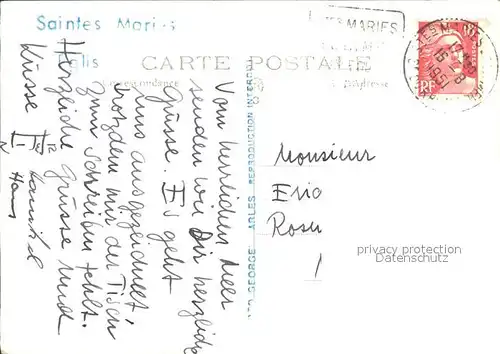 Saintes Maries
Eglis
CARTE POSTALE
Correspondance
Adresse
MARIES
15 -8
1951
RF
Vom herrlichen Meer
senden wir Dir herzliche
Grüsse. Es geht
uns ausgezeichnet
trotzdem mir der Tisch
zum Schreiben fehlt.
Herzliche Grüsse und
Küsse
Hans
GEORGE ARLES REPRODUCTION INTER
Monsieur
Eric
Rosu
privacy protection
Datenschutz